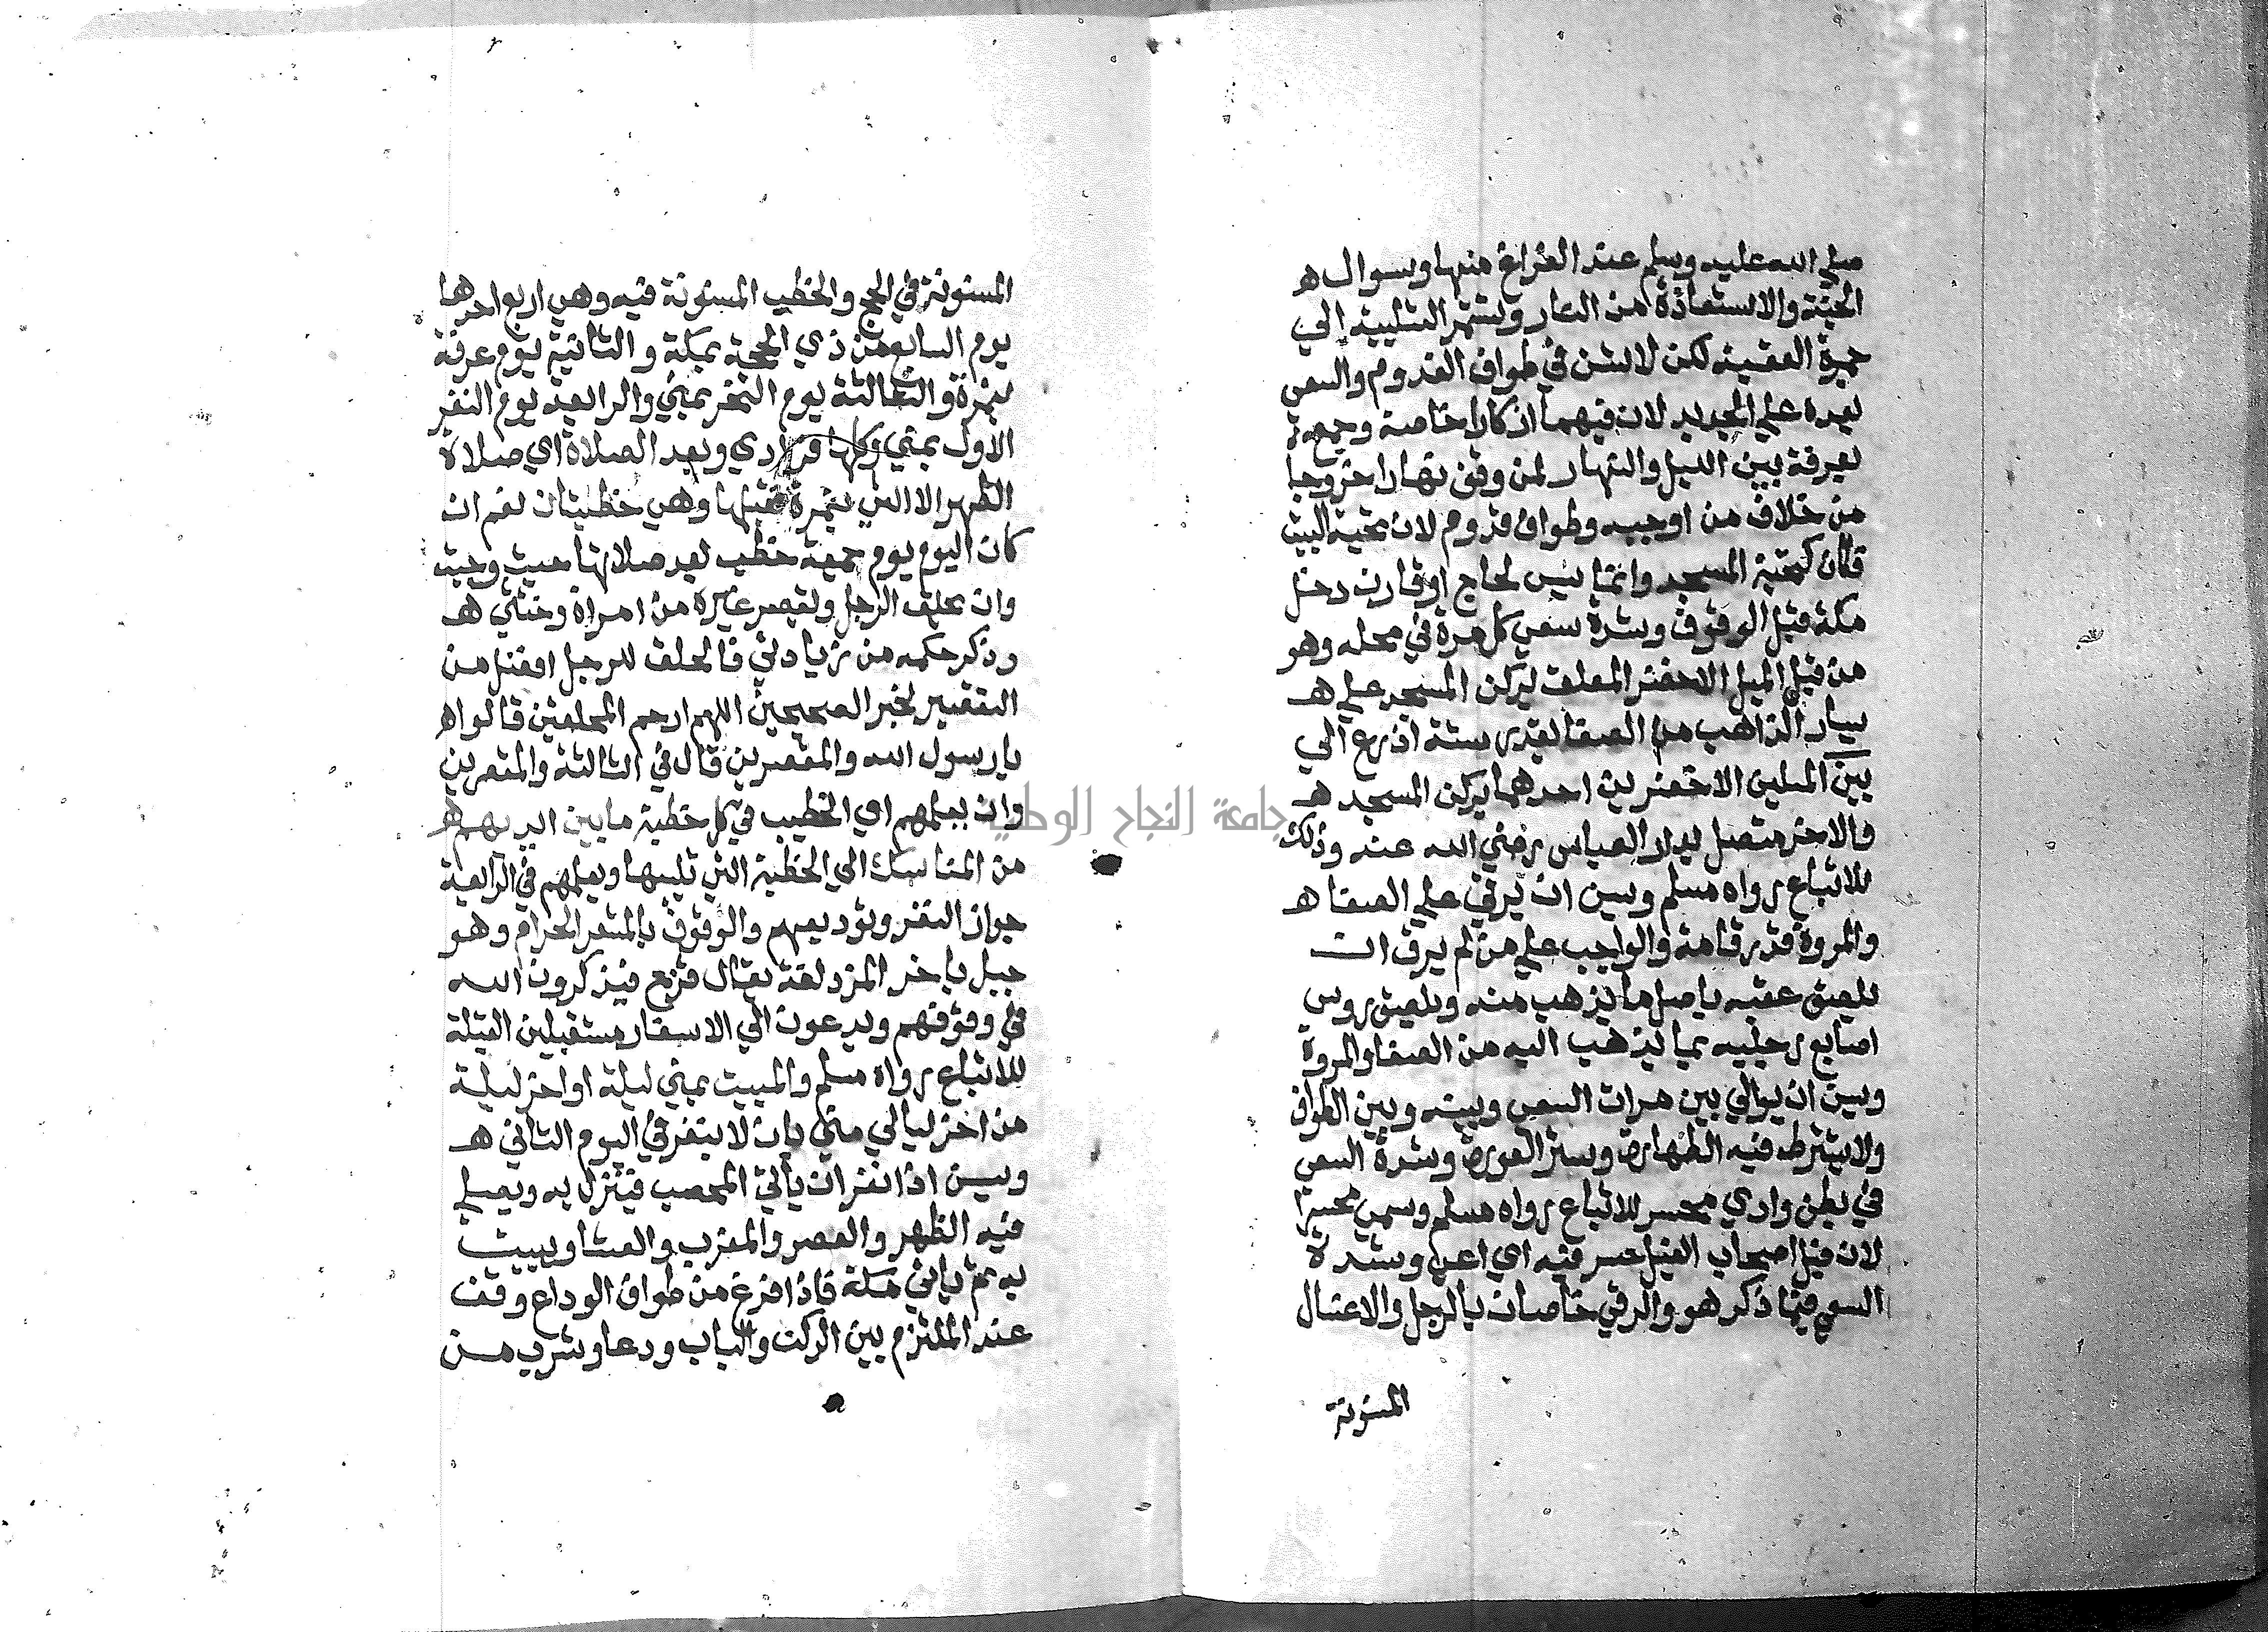 صلي الله عليه وسلم عند الفراغ منها وسوال ه
الجنة والاستعاذة من النار وتستمر التلبية الي
جمرة العقبة لكن لا تسن في طواف القدوم والسعي
بعده علي الجديد لان فيهما اذكارا خاصة وجمع
بعرفة بين الليل والنهار لمن وقف نهارا خروجا
من خلاف من اوجبه وطواف قدوم لانه تحية البيت
فكان كتحية المسجد وانما يسن لحاج او قارن دخل
مكة قبل الوقوف وشدة سعي كل مرة في محله وهو
من قبل الميل الاخضر المعلق بركن المسجد علي ه
يسار الذاهب من الصفا بقدر ستة اذرع الي
بين الميلين الاخضرين احدهما بركن المسجد ه
والاخر متصل بدار العباس رضي الله عنه وذلك
للاتباع رواه مسلم وسن ان يرقي علي الصفا ه
والمروة قدر قامة والواجب علي من لم يرق ان
يلصق عقبه باصل ما يذهب منه ويلصق روس
اصابع رجليه بما يذهب اليه من الصفا والمروة
وسن ان يوالي بين مرات السعي وبينه وبين الطواف
ولا يشترط فيه الطهارة وستر العورة وشدة السعي
في بطن وادي محسر للاتباع رواه مسلم وسمي محسرا
لان فيل اصحاب الفيل حسر فيه اي اعيي وشدة
السعي فيما ذكر هو والرقي خاصان بالرجل والاغتسال
المسنونة
المسنونة في الحج والخطب المسنونة فيه وهي اربع احدها
يوم السابع من ذي الحجة بمكة والثانية يوم عرفة
بنمرة والثالثة يوم النحر بمني والرابعة يوم النفر
الاول بمني وكلها فرادي وبعد الصلاة اي صلاة
الظهر الا التي بنمرة فقبلها وهي خطبتان نعم ان
كان اليوم يوم جمعة خطب بعد صلاتها حيث وجبت
وان يحلق الرجل ويقصر غيره من امراة وخنثي ه
وذكر حكمه من زيادتي فالحلق للرجل افضل من
التقصير لخبر الصحيحين اللهم ارحم المحلقين قالوا ه
يا رسول الله والمقصرين قال في الثالثة والمقصرين
وان يعلمهم اي الخطيب في كل خطبة ما بين ايديهم ه
من المناسك الي الخطبة التي تليها ويعلمهم في الرابعة
جواز النفر وتوديعهم والوقوف بالمشعر الحرام وهو
جبل باخر المزدلفة يقال قزح فيذكرون الله
في وقوفهم ويدعون الي الاسفار مستقبلين القبلة
للاتباع رواه مسلم والمبيت بمني ليلة او اخر ليلة
من اخر ليالي مني بان لا ينفر في اليوم الثاني ه
ويسن اذا نفر ان ياتي المحصب فينزل به ويصلي
فيه الظهر والعصر والمغرب والعشا ويبيت
به ثم ياتي مكة فاذا فرغ من طواف الوداع وقف
عند الملتزم بين الركن والباب ودعا وشرب من
جامعة النجاح الوطنية